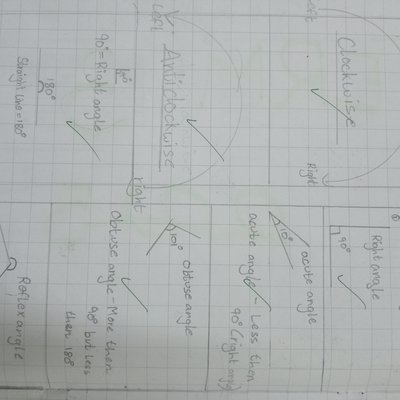 Left
Clockwise
Right
Left
Anticlockwise
right
90°
90° = Right angle
180°
Straight line = 180°
Right angle
90°
acute angle
10°
acute angle - Less then
90° (right angle)
obtuse angle
101°
Obtuse angle - More then
90° but less
then 180°
Reflex angle